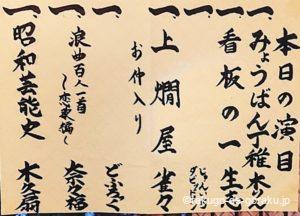 本日の演目
一、みょうばん丁稚
一、看板の一
一、上燗屋 雀々
お仲入り
一、
一、浪曲百人一首 奈々福
〜恋歌編〜
一、昭和芸能史 木久扇